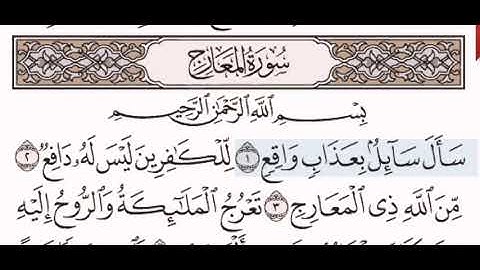 سُورَةُ المَعَارِجِ
بِسْمِ اللَّهِ الرَّحْمَٰنِ الرَّحِيمِ
سَأَلَ سَآئِلٌۢ بِعَذَابٍ وَاقِعٍ ١ لِّلْكَٰفِرِينَ لَيْسَ لَهُۥ دَافِعٌ ٢
مِّنَ ٱللَّهِ ذِى ٱلْمَعَارِجِ ٣ تَعْرُجُ ٱلْمَلَٰٓئِكَةُ وَٱلرُّوحُ إِلَيْهِ